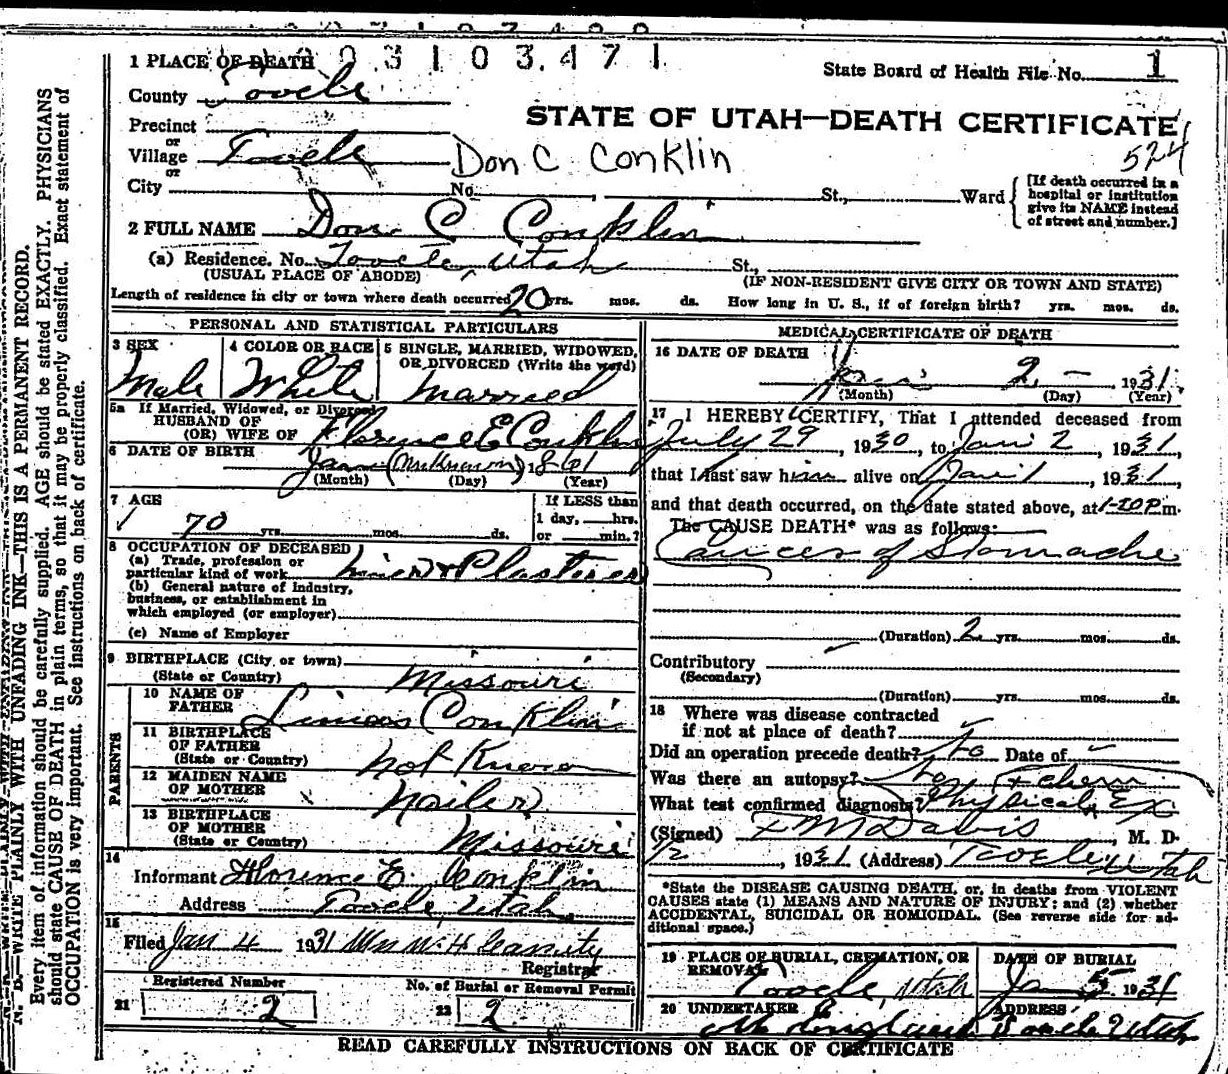 3 1 0 3 4 7 1
1 PLACE OF DEATH
State Board of Health File No. 1
County Tooele
STATE OF UTAH—DEATH CERTIFICATE
524
Precinct
or
Village Tooele Don C Conklin
or
City No. St., Ward
[If death occurred in a hospital or institution give its NAME instead of street and number.]
2 FULL NAME Don C Conklin
(a) Residence. No. Tooele, Utah St.,
(USUAL PLACE OF ABODE) (IF NON-RESIDENT GIVE CITY OR TOWN AND STATE)
Length of residence in city or town where death occurred 20 yrs. mos. ds. How long in U. S., if of foreign birth? yrs. mos. ds.
PERSONAL AND STATISTICAL PARTICULARS
3 SEX Male
4 COLOR OR RACE White
5 SINGLE, MARRIED, WIDOWED, OR DIVORCED (Write the word) Married
5a If Married, Widowed, or Divorced
HUSBAND OF
(OR) WIFE OF Florence E Conklin
6 DATE OF BIRTH Jan (Unknown) 1861
(Month) (Day) (Year)
7 AGE 70 yrs. mos. ds.
If LESS than 1 day, hrs. or min.?
8 OCCUPATION OF DECEASED
(a) Trade, profession or particular kind of work Miner & Plasterer
(b) General nature of industry, business, or establishment in which employed (or employer)
(c) Name of Employer
9 BIRTHPLACE (City or town)
(State or Country) Missouri
PARENTS
10 NAME OF FATHER Conklin
11 BIRTHPLACE OF FATHER (State or Country) Not Known
12 MAIDEN NAME OF MOTHER Nailer
13 BIRTHPLACE OF MOTHER (State or Country) Missouri
14
Informant Florence E. Conklin
Address Tooele, Utah
15
Filed Jan 4 1931 Wm McH
Registrar
Registered Number
21 2
No. of Burial or Removal Permit
22 2
MEDICAL CERTIFICATE OF DEATH
16 DATE OF DEATH
Jan 2 - , 1931
(Month) (Day) (Year)
17 I HEREBY CERTIFY, That I attended deceased from
July 29, 1930, to Jan 2, 1931,
that I last saw him alive on Jan 1, 1931,
and that death occurred, on the date stated above, at 1-10 P m.
The CAUSE DEATH* was as follows:
Cancer of Stomache
(Duration) 2 yrs. mos. ds.
Contributory
(Secondary)
(Duration) yrs. mos. ds.
18 Where was disease contracted
if not at place of death?
Did an operation precede death? No Date of
Was there an autopsy? No
What test confirmed diagnosis? Physical Ex + chem
(Signed) F M Davis, M. D.
1/2, 1931 (Address) Tooele, Utah
*State the DISEASE CAUSING DEATH, or, in deaths from VIOLENT
CAUSES state (1) MEANS AND NATURE OF INJURY; and (2) whether
ACCIDENTAL, SUICIDAL OR HOMICIDAL. (See reverse side for ad-
ditional space.)
19 PLACE OF BURIAL, CREMATION, OR REMOVAL Tooele, Utah
DATE OF BURIAL Jan 5 1931
20 UNDERTAKER
ADDRESS Tooele Utah
READ CAREFULLY INSTRUCTIONS ON BACK OF CERTIFICATE
N. B.—WRITE PLAINLY WITH UNFADING INK—THIS IS A PERMANENT RECORD.
Every item of information should be carefully supplied. AGE should be stated EXACTLY. PHYSICIANS
should state CAUSE OF DEATH in plain terms, so that it may be properly classified. Exact statement of
OCCUPATION is very important. See instructions on back of certificate.